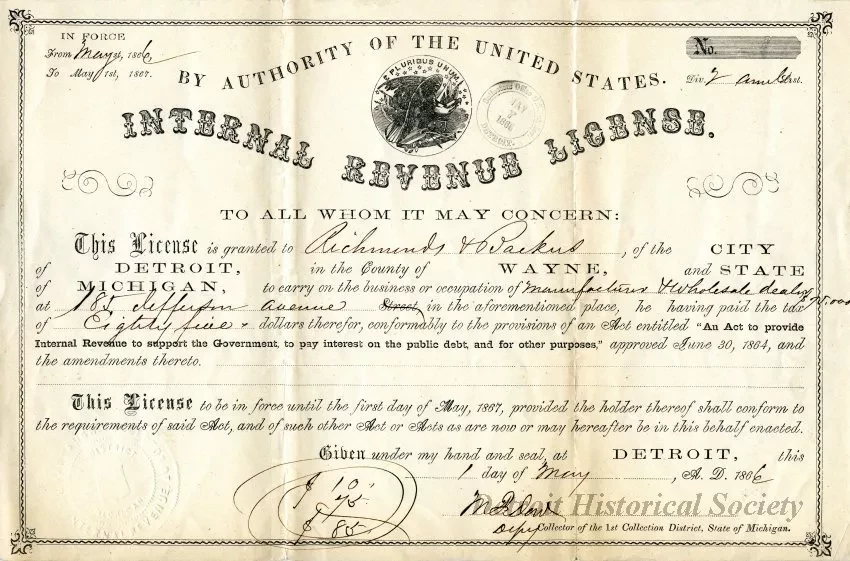 IN FORCE
From May 1st, 1866,
To May 1st, 1867.
BY AUTHORITY OF THE UNITED STATES.
E PLURIBUS UNUM
No.
Div. 2 Dist.
MAY
1866
INTERNAL REVENUE LICENSE.
TO ALL WHOM IT MAY CONCERN:
This License is granted to Richmonds & Backus, of the CITY
of DETROIT, in the County of WAYNE, and STATE
of MICHIGAN, to carry on the business or occupation of Manufacturers & Wholesale dealing
at 185 Jefferson avenue Street, in the aforementioned place, he having paid the tax
of Eighty five dollars therefor, conformably to the provisions of an Act entitled "An Act to provide
Internal Revenue to support the Government, to pay interest on the public debt, and for other purposes," approved June 30, 1864, and
the amendments thereto.
This License to be in force until the first day of May, 1867, provided the holder thereof shall conform to
the requirements of said Act, and of such other Act or Acts as are now or may hereafter be in this behalf enacted.
Given under my hand and seal, at DETROIT, this
1 day of May, A. D. 1866
$ 10
75
$ 85
Detroit Historical Society
Depy Collector of the 1st Collection District, State of Michigan.